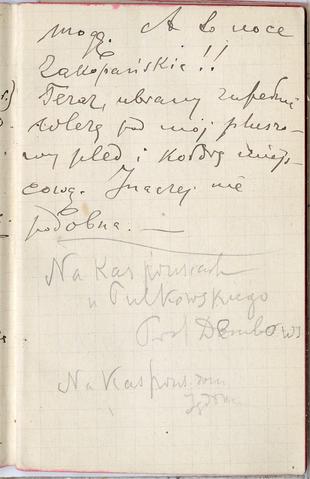 mogę. A to noce
Zakopańskie!!
Teraz, ubrany zupełnie
włażę pod mój pluszo-
wy pled i kołdrę miejs-
cową. Inaczej nie
podobna. —
Na Kasprusiach
u Pulkowskiego
Prof Dembows
Na Kasprus. dom